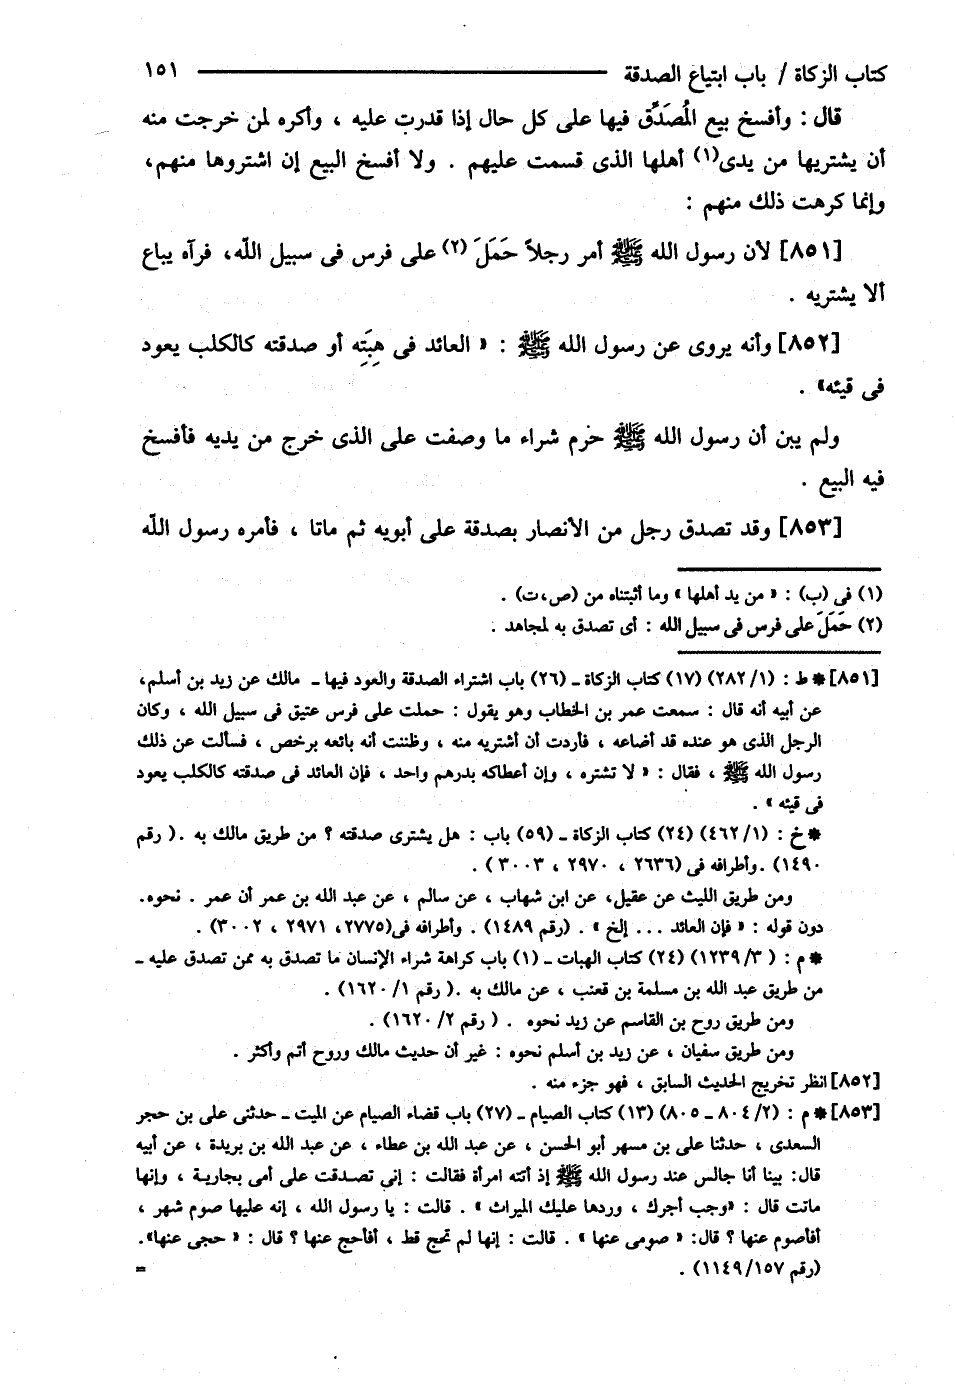 كتاب الزكاة / باب ابتياع الصدقة ١٥١
قال : وأفسخ بيع المُصَدِّق فيها على كل حال إذا قدرت عليه ، وأكره لمن خرجت منه
أن يشتريها من يدى(١) أهلها الذى قسمت عليهم . ولا أفسخ البيع إن اشتروها منهم،
وإنما كرهت ذلك منهم :
[٨٥١] لأن رسول الله ﷺ أمر رجلاً حَمَلَ (٢) على فرس فى سبيل اللّه، فرآه يباع
ألا يشتريه .
[٨٥٢] وأنه يروى عن رسول الله ﷺ : « العائد فى هِبَتِه أو صدقته كالكلب يعود
فى قيئه» .
ولم يبن أن رسول الله ﷺ حرم شراء ما وصفت على الذى خرج من يديه فأفسخ
فيه البيع .
[٨٥٣] وقد تصدق رجل من الأنصار بصدقة على أبويه ثم ماتا ، فأمره رسول اللّه
(١) فى (ب) : « من يد أهلها » وما أثبتناه من (ص،ت) .
(٢) حَمَلَ على فرس فى سبيل الله : أى تصدق به لمجاهد .
[٨٥١] * ط : (١/ ٢٨٢) (١٧) كتاب الزكاة ـ (٢٦) باب اشتراء الصدقة والعود فيها ـ مالك عن زيد بن أسلم،
عن أبيه أنه قال : سمعت عمر بن الخطاب وهو يقول : حملت على فرس عتيق فى سبيل الله ، وكان
الرجل الذى هو عنده قد أضاعه ، فأردت أن أشتريه منه ، وظننت أنه بائعه برخص ، فسألت عن ذلك
رسول الله ﷺ ، فقال : « لا تشتره ، وإن أعطاكه بدرهم واحد ، فإن العائد فى صدقته كالكلب يعود
فى قيئه » .
* خ : (١/ ٤٦٢) (٢٤) كتاب الزكاة ـ (٥٩) باب : هل يشترى صدقته ؟ من طريق مالك به .( رقم
١٤٩٠) .وأطرافه فى (٢٦٣٦ ، ٢٩٧٠ ، ٣٠٠٣ ) .
ومن طريق الليث عن عقيل، عن ابن شهاب ، عن سالم ، عن عبد الله بن عمر أن عمر . نحوه.
دون قوله : « فإن العائد ... إلخ » . (رقم ١٤٨٩) . وأطرافه فى(٢٧٧٥، ٢٩٧١ ، ٣٠٠٢) .
* م : ( ٣/ ١٢٣٩) (٢٤) كتاب الهبات ـ (١) باب كراهة شراء الإنسان ما تصدق به ممن تصدق عليه ـ
من طريق عبد الله بن مسلمة بن قعنب ، عن مالك به .( رقم ١/ ١٦٢٠) .
ومن طريق روح بن القاسم عن زيد نحوه . ( رقم ٢/ ١٦٢٠) .
ومن طريق سفيان ، عن زيد بن أسلم نحوه : غير أن حديث مالك وروح أتم وأكثر .
[٨٥٢] انظر تخريج الحديث السابق ، فهو جزء منه .
[٨٥٣] * م : (٢/ ٨٠٤ ـ ٨٠٥) (١٣) كتاب الصيام ـ (٢٧) باب قضاء الصيام عن الميت ـ حدثنى على بن حجر
السعدى ، حدثنا على بن مسهر أبو الحسن ، عن عبد الله بن عطاء ، عن عبد الله بن بريدة ، عن أبيه
قال: بينا أنا جالس عند رسول الله ﷺ إذ أتته امرأة فقالت : إنى تصدقت على أمى بجارية ، وإنها
ماتت قال : «وجب أجرك ، وردها عليك الميراث » . قالت : يا رسول الله ، إنه عليها صوم شهر ،
أفأصوم عنها ؟ قال: « صومى عنها » . قالت : إنها لم تحج قط ، أفأحج عنها ؟ قال : « حجى عنها».
(رقم ١٥٧/ ١١٤٩) . =